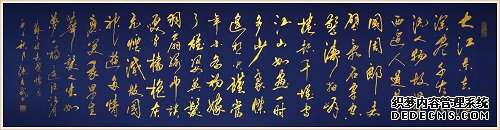 大江东去
浪淘尽千古
风流人物故垒
西边人道是三
国周郎赤
壁乱石穿空
惊涛拍岸
卷起千堆雪
江山如画一时
多少豪杰
遥想公瑾当
年小乔初嫁
了雄姿英发
羽扇纶巾谈
笑间樯橹灰
飞烟灭故国
神游多情
应笑我早生
华发人生如
梦一尊还酹江月
织梦内容管理系统
DEDECMS.COM